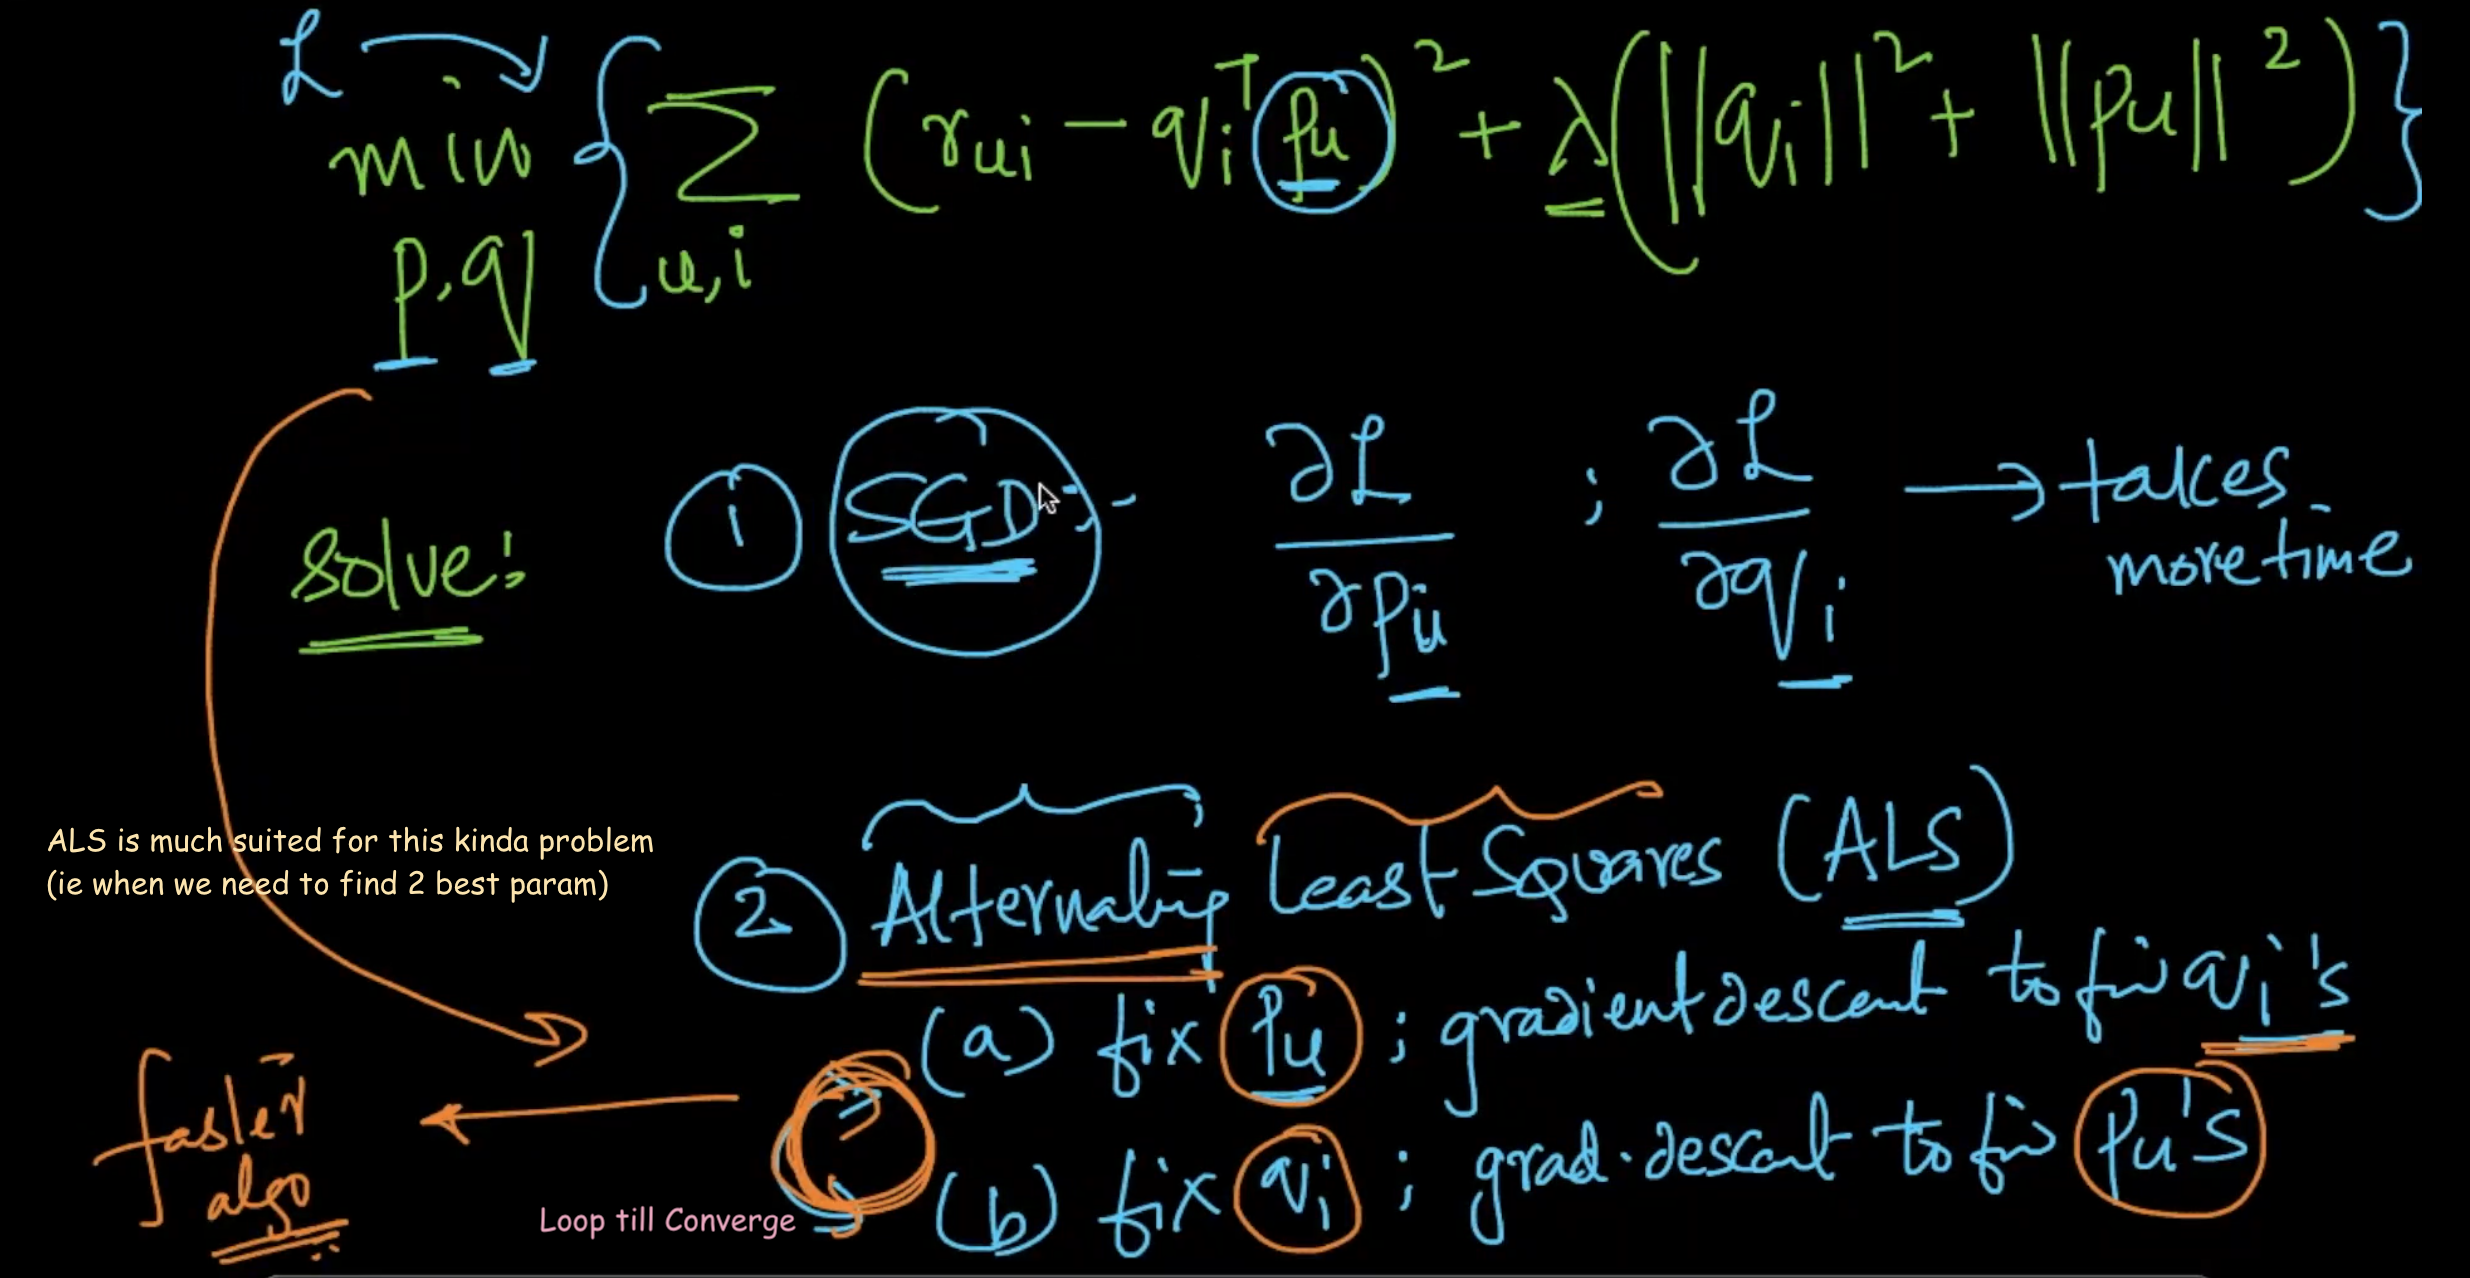 L
min { Σ (rui − qiᵀ pu)² + λ(||qi||² + ||pu||²) }
p,q u,i
solve:
1 SGD:- ∂L/∂pu ; ∂L/∂qi → takes
more time
ALS is much suited for this kinda problem
(ie when we need to find 2 best param)
2 Alternating Least Squares (ALS)
(a) fix pu ; gradient descent to fin qi's
(b) fix qi ; grad. descent to fin pu's
faster
algo
Loop till Converge